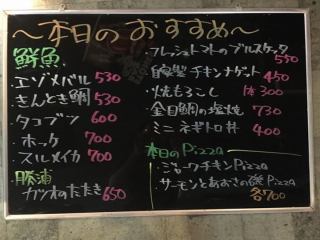 ～本日のおすすめ～
鮮魚
・エゾメバル 530
・きんとき鯛 530
・タコブツ 600
・ホッケ 700
・スルメイカ 700
勝浦
・カツオのたたき 650
・フレッシュトマトのブルスケッタ
550
・自家製チキンナゲット 450
・焼もろこし 1本 300
・金目鯛の塩焼 730
・ミニネギトロ丼 400
本日のPizza
・ジャークチキンPizza
・サーモンとあおさの磯Pizza
各700